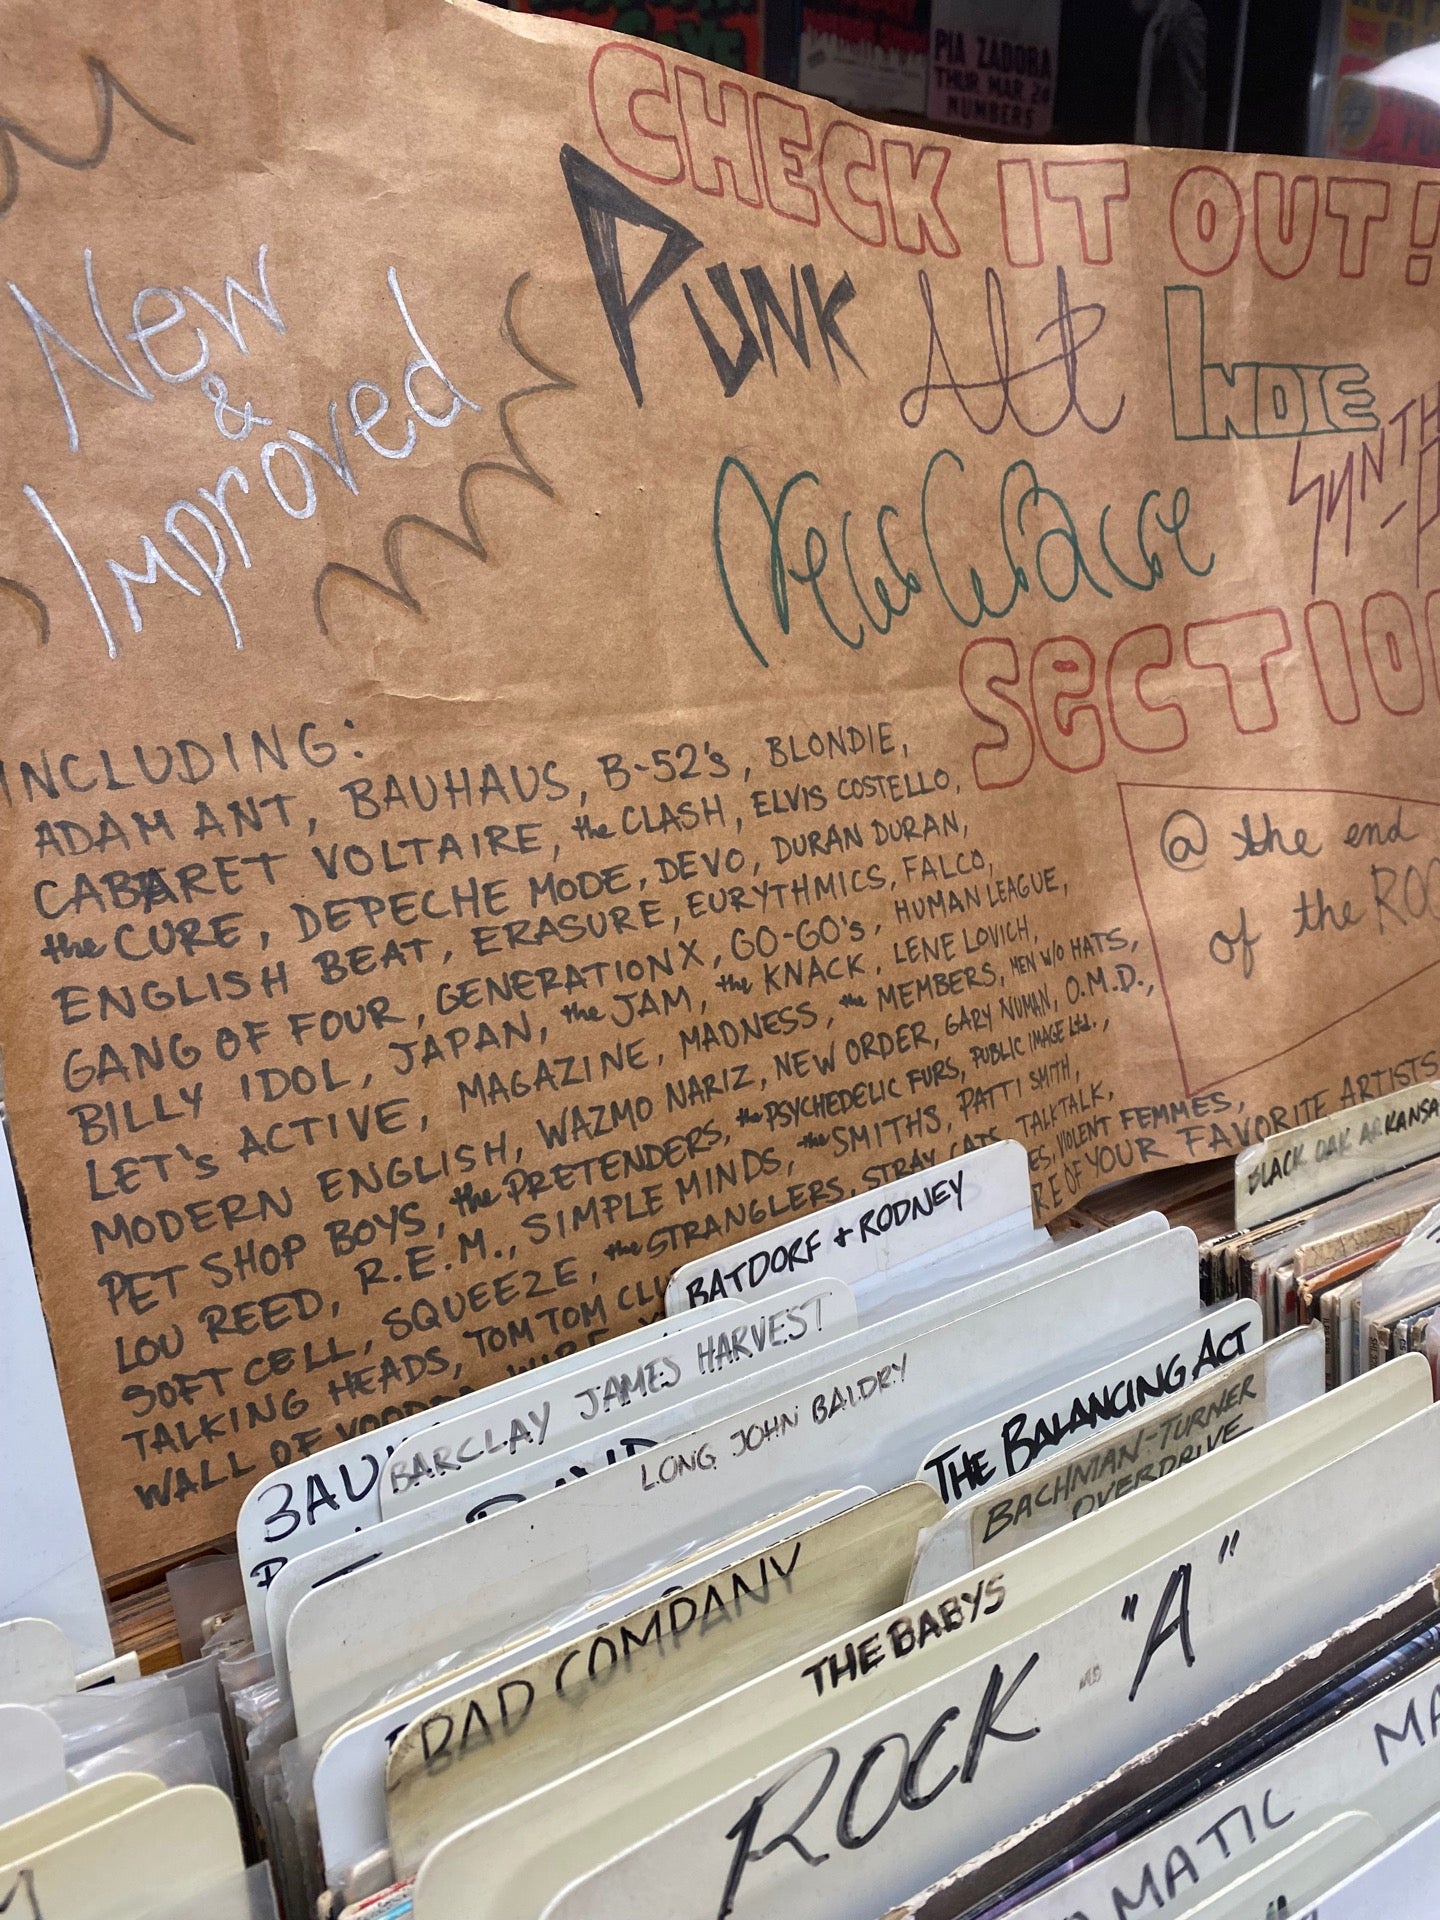 PIA ZADORA
THUR. MAR. 24
NUMBERS
CHECK IT OUT!
New
&
Improved
PUNK Alt INDIE
New Wave
SYNTH
SECTIO
INCLUDING:
ADAM ANT, BAUHAUS, B-52's, BLONDIE,
CABARET VOLTAIRE, the CLASH, ELVIS COSTELLO,
the CURE, DEPECHE MODE, DEVO, DURAN DURAN,
ENGLISH BEAT, ERASURE, EURYTHMICS, FALCO,
GANG OF FOUR, GENERATION X, GO-GO's, HUMAN LEAGUE,
BILLY IDOL, JAPAN, the JAM, the KNACK, LENE LOVICH,
LET's ACTIVE, MAGAZINE, MADNESS, the MEMBERS, MEN W/O HATS,
MODERN ENGLISH, WAZMO NARIZ, NEW ORDER, GARY NUMAN, O.M.D.,
PET SHOP BOYS, the PRETENDERS, the PSYCHEDELIC FURS, PUBLIC IMAGE Ltd.,
LOU REED, R.E.M., SIMPLE MINDS, the SMITHS, PATTI SMITH,
SOFT CELL, SQUEEZE, the STRANGLERS, STRAY CATS, TALK TALK,
TALKING HEADS, TOM TOM CLU ES, VIOLENT FEMMES,
WALL OF VOODO RE OF YOUR FAVORITE ARTISTS
@ the end
of the ROC
BLACK OAK ARKANSA
BATDORF + RODNEY
BARCLAY JAMES HARVEST
BAU
LONG JOHN BALDRY
THE BALANCING ACT
BACHMAN-TURNER
OVERDRIVE
BAD COMPANY
THE BABYS
ROCK "A"
MA
MATIC